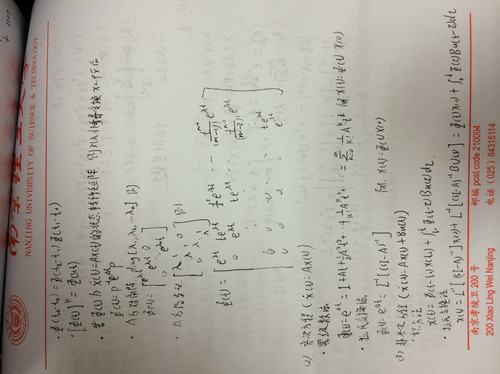 南京理工大学
NANJING UNIVERSITY OF SCIENCE & TECHNOLOGY
· Φ(t₂-t₀) = Φ(t₂-t₁) Φ(t₁-t₀)
· [Φ(t)]ᵏ = Φ(kt)
· 若Φ(t)为 ẋ(t)=Ax(t)的状态转移矩阵, 则引入非奇异变换 x=Px̄后
Φ(t)= P⁻¹e^{At}P
· A为对角阵, diag[λ₁, λ₂ ... λn] 则
Φ(t) = [e^{λt} 0
0 e^{λt}]
· A为约当 [λ 1
λ 1
λ 1
λ] 则
Φ(t) = [e^{λt} te^{λt} ½t²e^{λt} ... t^{m-1}/(m-1)! e^{λt}
0 e^{λt} te^{λt} ... t^{m-2}/(m-2)! e^{λt}
0 0 0 ... te^{λt}
0 0 0 ... e^{λt}]
(2) 齐次方程 (ẋ(t)=Ax(t))
· 幂级数法
Φ(t)=e^{At} = I+At+½A²t²+ ... +1/k! Aᵏtᵏ ... = Σ_{k=0}^{∞} 1/k! Aᵏtᵏ 解 x(t)=Φ(t)x(0)
· 拉氏变换法
Φ(t)=e^{At} = L⁻¹[(sI-A)⁻¹] 解 x(t)=Φ(t)x(0)
(3) 非齐次方程 (ẋ(t)=Ax(t)+Bu(t))
· 积分法
x(t)=Φ(t-t₀)x(t₀)+∫Φ(t-τ)Bu(τ)dτ
· 拉氏变换法
x(t)= L⁻¹[(sI-A)⁻¹]x(0)+L⁻¹[(sI-A)⁻¹BU(s)] = Φ(t)x(0)+∫Φ(τ)Bu(t-τ)dτ
南京孝陵卫 200 号 邮编 post code 210094
200 Xiao Ling Wei Nanjing 电话 (025) 84315114